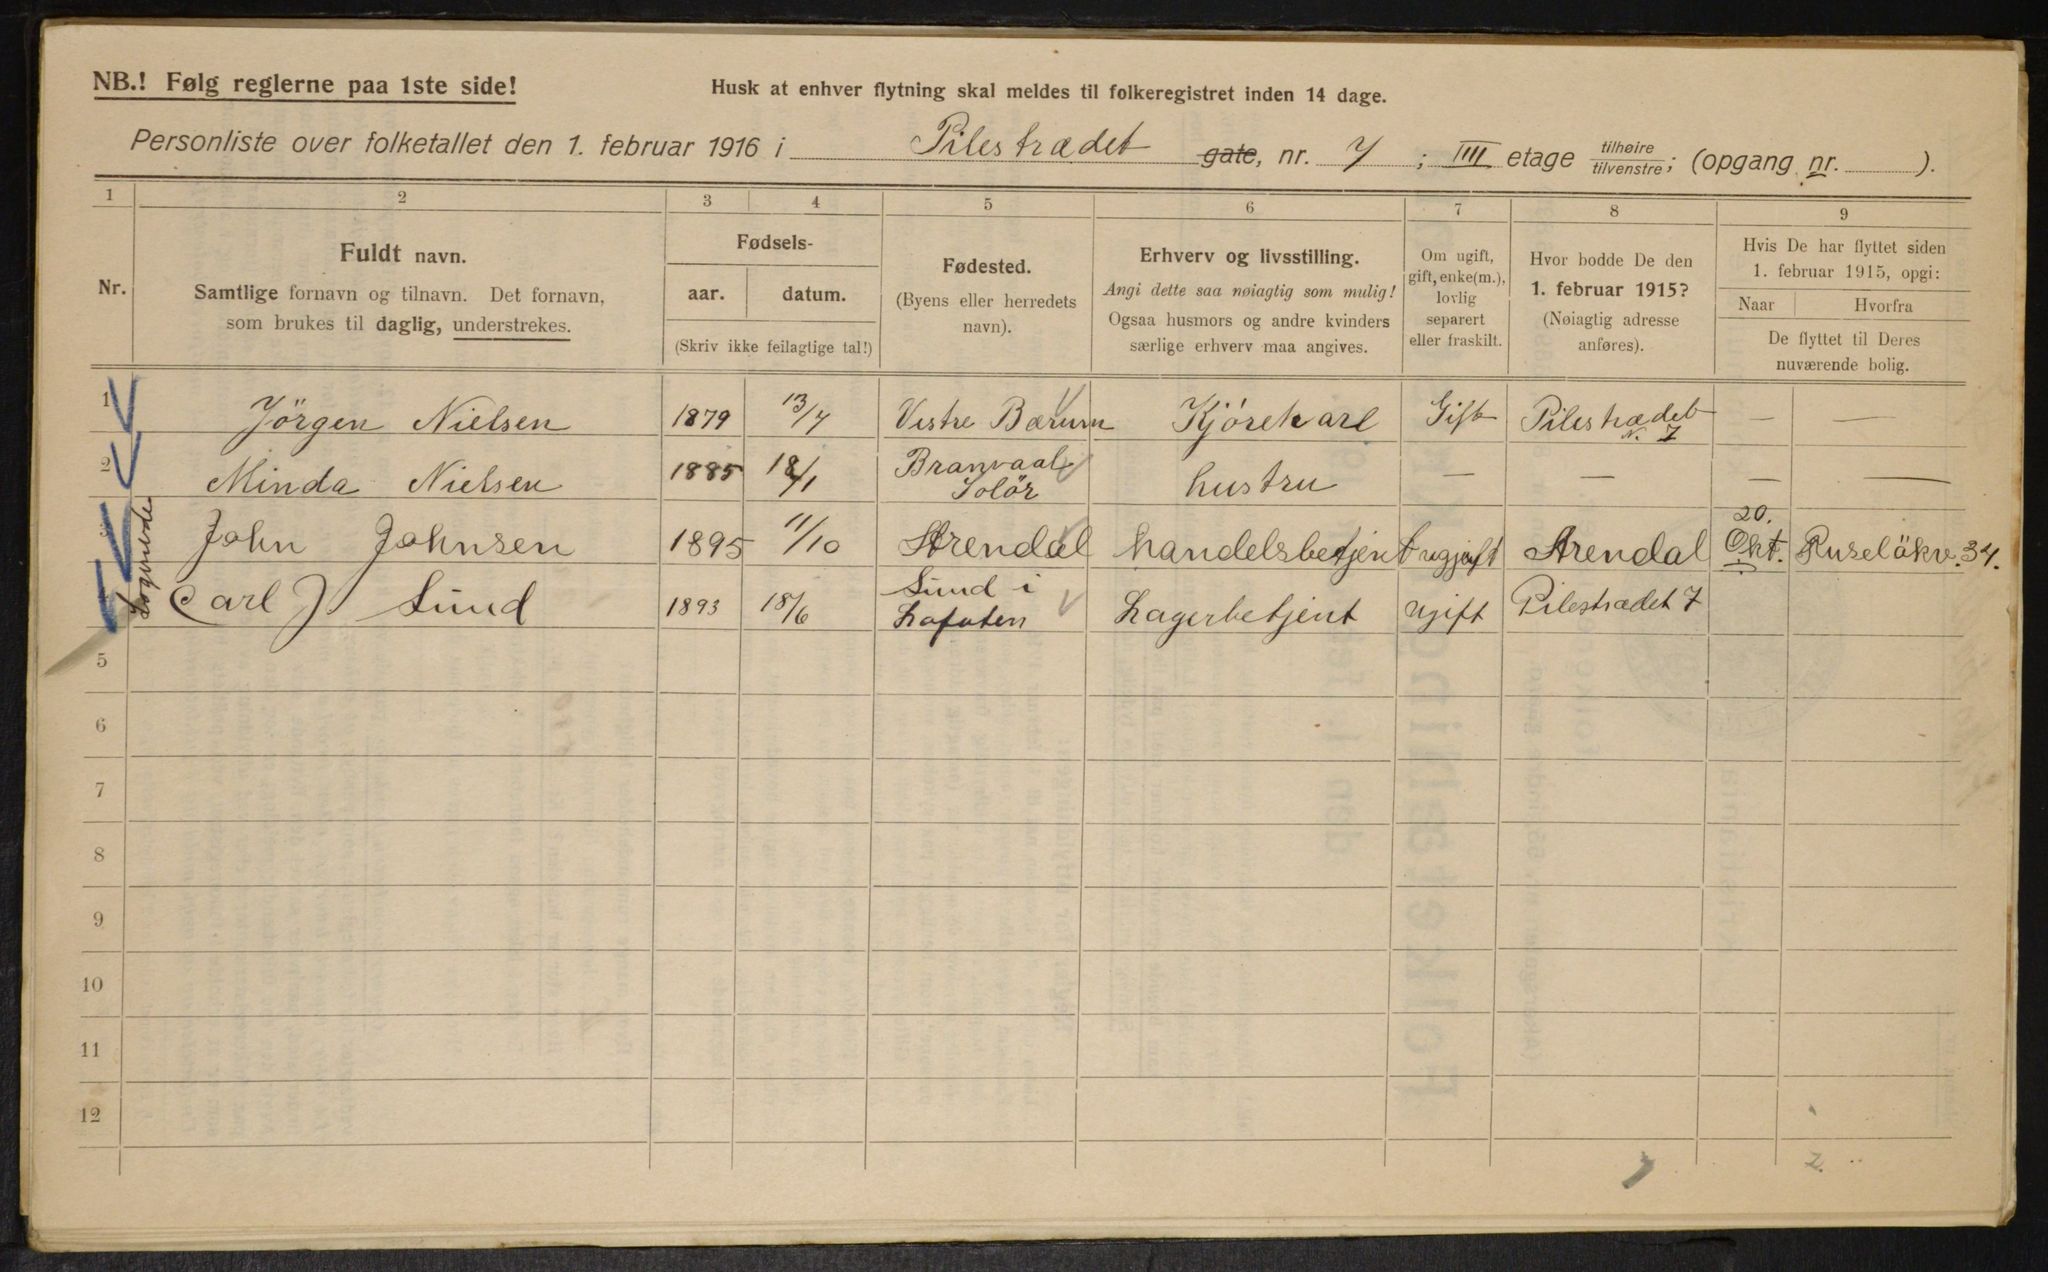 NB.! Følg reglerne paa 1ste side!
Husk at enhver flytning skal meldes til folkeregistret inden 14 dage.
Personliste over folketallet den 1. februar 1916 i Pilestrædet gate, nr. 7 ; IIII etage tilhøire tilvenstre; (opgang nr. ).
1 2 3 4 5 6 7 8 9
Nr.
Fuldt navn.
Samtlige fornavn og tilnavn. Det fornavn,
som brukes til daglig, understrekes.
Fødsels-
aar. datum.
(Skriv ikke feilagtige tal!)
Fødested.
(Byens eller herredets
navn).
Erhverv og livsstilling.
Angi dette saa nøiagtig som mulig!
Ogsaa husmors og andre kvinders
særlige erhverv maa angives.
Om ugift,
gift, enke(m.),
lovlig
separert
eller fraskilt.
Hvor bodde De den
1. februar 1915?
(Nøiagtig adresse
anføres).
Hvis De har flyttet siden
1. februar 1915, opgi:
Naar Hvorfra
De flyttet til Deres
nuværende bolig.
1 Jörgen Nielsen 1879 13/7 Vestre Bærum Kjörekarl Gift Pilestrædet N. 7 — —
2 Minda Nielsen 1885 18/1 Branvaal Solör hustru — — — —
Logerende
3 John Johnsen 1895 11/10 Arendal handelsbetjent ugift Arendal 20. Okt. Ruselökv. 34.
Carl J Sund 1893 18/6 Sund i Lofoten Lagerbetjent ugift Pilestrædet 7
5
6
7
8
9
10
11
12